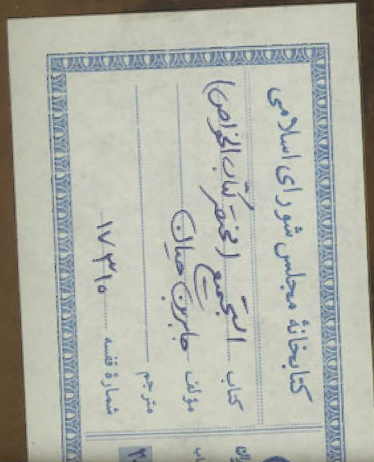 کتابخانهٔ مجلس شورای اسلامی
کتاب التجمیع (مختصر کتاب الخواص)
مؤلف جابر بن حیان
مترجم
شمارهٔ قفسه ۱۷۳۱۵